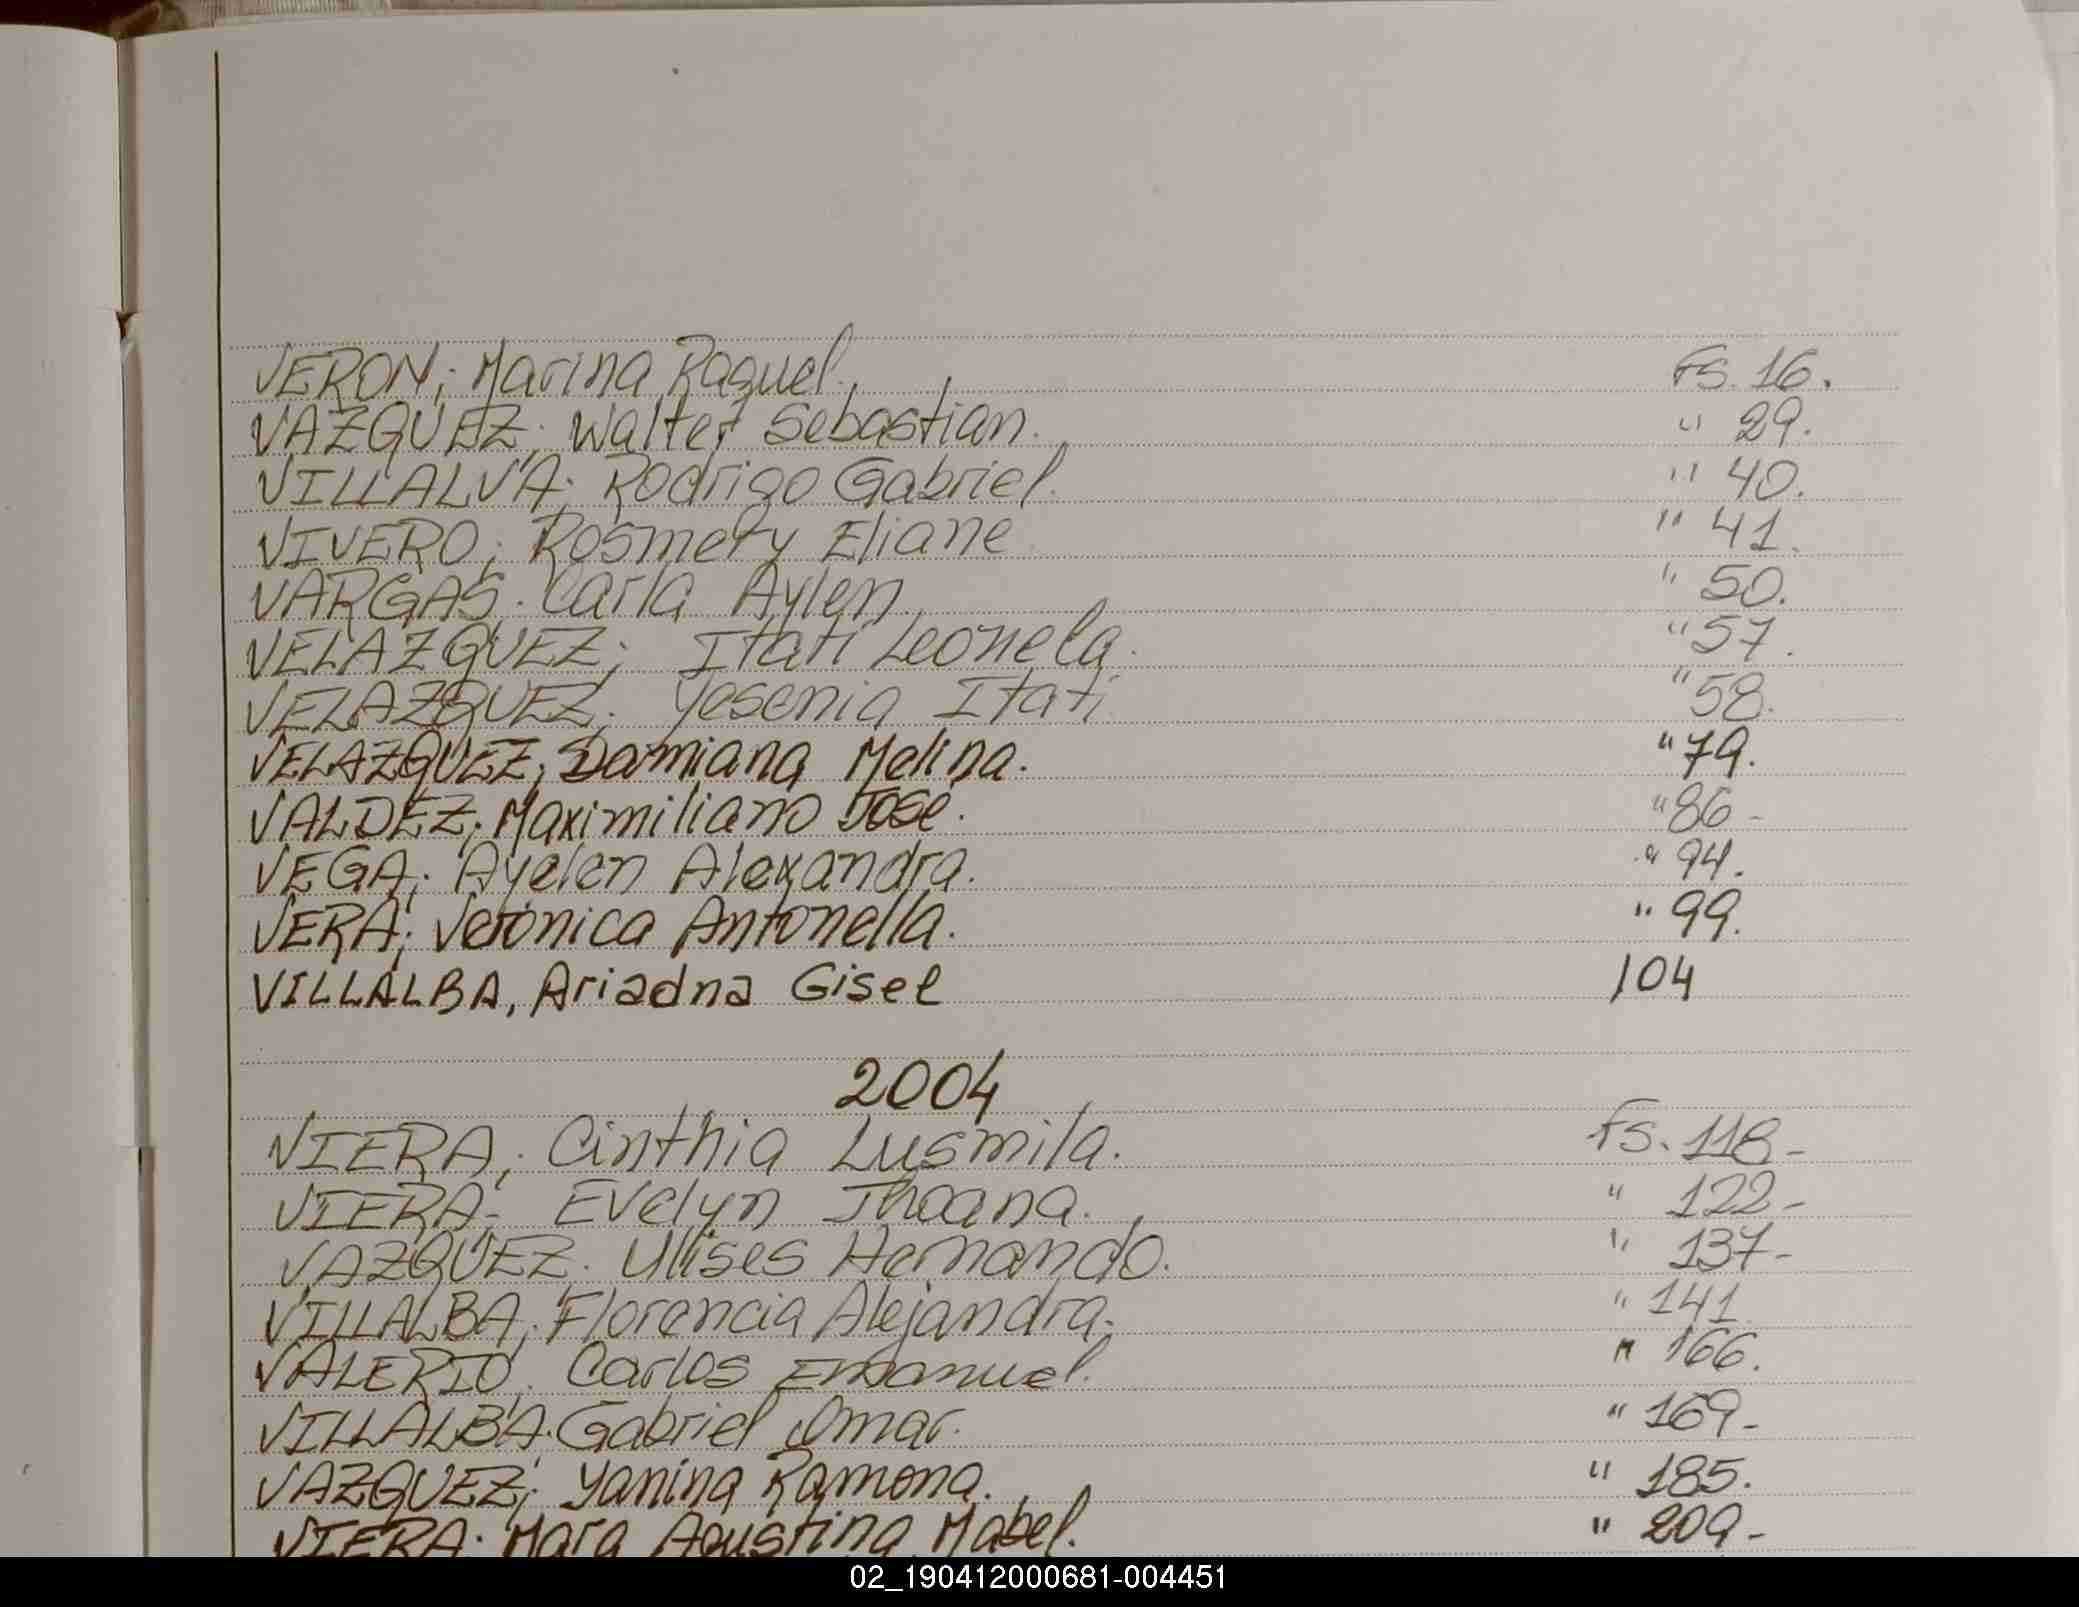 VERON; Marina Raquel. Fs. 16.
VAZQUEZ; Walter Sebastián. " 29.
VILLALVA; Rodrigo Gabriel. " 40.
VIVERO; Rosmery Eliane " 41.
VARGAS. Carla Aylen. " 50.
VELAZQUEZ; Itatí Leonela. " 57.
VELAZQUEZ. Yesenia Itatí " 58.
VELAZQUEZ; Damiana Melina. " 79.
VALDEZ; Maximiliano José. " 86-
VEGA; Ayelen Alexandra. " 94.
VERA; Verónica Antonella. " 99.
VILLALBA, Ariadna Gisel 104
2004
VIERA; Cinthia Lusmila. Fs. 118-
VIERA- Evelyn Jhoana. " 122-
VAZQUEZ. Ulises Hernando. " 137-
VILLALBA; Florencia Alejandra. " 141
VALERIO. Carlos Emanuel. " 166.
VILLALBA. Gabriel Omar. " 169-
VAZQUEZ; Yanina Ramona. " 185.
VIERA. Mara Agustina Mabel. " 209-
02_190412000681-004451